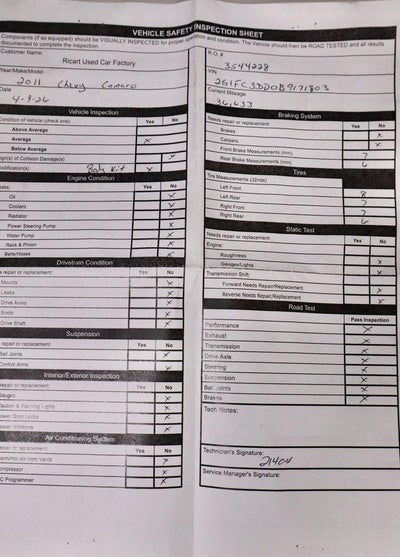 VEHICLE SAFETY INSPECTION SHEET
Components (if so equipped) should be VISUALLY INSPECTED for proper operation and condition. The Vehicle should then be ROAD TESTED and all results
documented to complete the inspection.
Customer Name:
Ricart Used Car Factory
Year/Make/Model
2011 Chevy Camaro
Date
4-9-26
Vehicle Inspection
Condition of vehicle (check one): Yes No
Above Average
Average X
Below Average
Sign(s) of Collision Damage(s) X
Modification(s) Body Kit X
Engine Condition
Leaks: Yes No
Oil X
Coolant X
Radiator X
Power Steering Pump X
Water Pump X
Rack & Pinion X
Belts/Hoses X
Drivetrain Condition
repair or replacement: Yes No
Mounts X
Leaks X
Drive Axles X
Joints X
Drive Shaft X
Suspension
repair or replacement: Yes No
Ball Joints X
Control Arms X
Interior/Exterior Inspection
repair or replacement: Yes No
Gauges X
Caution & Warning Lights X
Power Door Locks X
Power Windows X
Air Conditioning System
repair or replacement: Yes No
Warm/Hot Air from Vents X
Compressor X
C Programmer X
R.O. #
3544228
VIN
2G1FC3DD0B9171803
Current Mileage
36,633
Braking System
Needs repair or replacement: Yes No
Brakes X
Calipers X
Front Brake Measurements (mm) 7
Rear Brake Measurements (mm) 6
Tires
Tire Measurements (32nds)
Left Front 8
Left Rear 7
Right Front 7
Right Rear 6
Static Test
Needs repair or replacement: Yes No
Engine:
Roughness
Gauges/Lights X
Transmission Shift: X
Forward Needs Repair/Replacement
Reverse Needs Repair/Replacement X
Road Test
Pass Inspection
Performance X
Exhaust
Transmission X
Drive Axle X
Steering X
Suspension X
Ball Joints X
Brakes X
Tech Notes:
Technician's Signature:
21404
Service Manager's Signature: